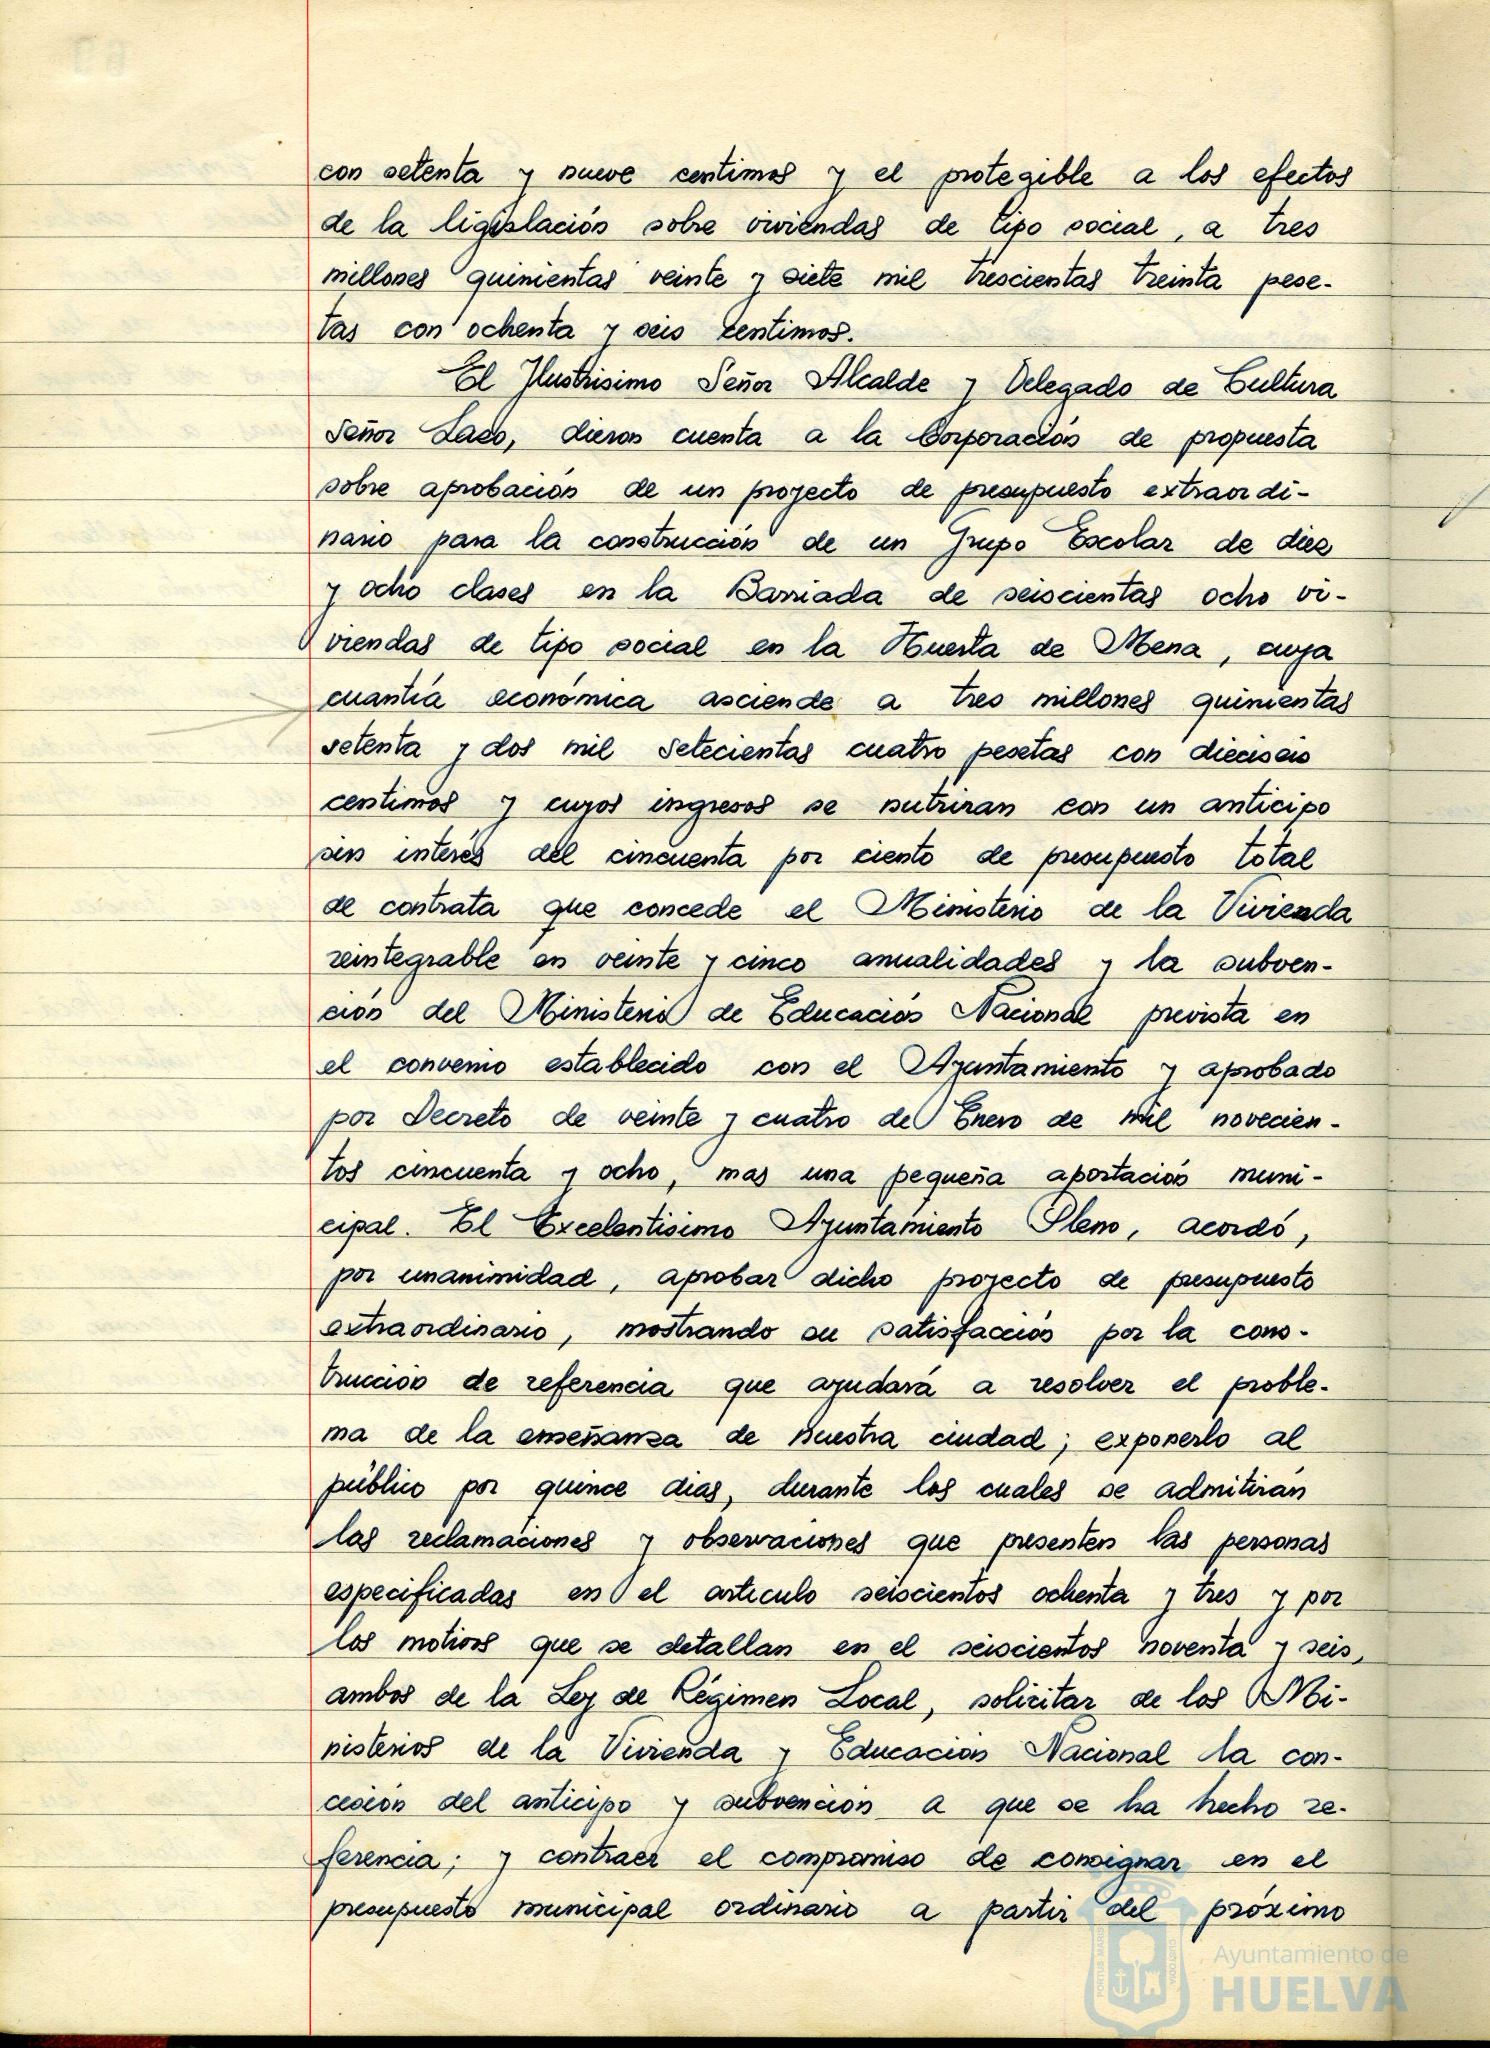 con setenta y nueve centimos y el protegible a los efectos
de la ligislación sobre viviendas de tipo social, a tres
millones quinientas veinte y siete mil trescientas treinta pese-
tas con ochenta y seis centimos.
El Ilustrisimo Señor Alcalde y Delegado de Cultura
Señor Laso, dieron cuenta a la Corporación de propuesta
sobre aprobación de un proyecto de presupuesto extraordi-
nario para la construcción de un Grupo Escolar de diez
y ocho clases en la Barriada de seiscientas ocho vi-
viendas de tipo social en la Huerta de Mena, cuya
cuantía económica asciende a tres millones quinientas
setenta y dos mil setecientas cuatro pesetas con dieciseis
centimos y cuyos ingresos se nutriran con un anticipo
sin interés del cincuenta por ciento de presupuesto total
de contrata que concede el Ministerio de la Vivienda
reintegrable en veinte y cinco anualidades y la subven-
ción del Ministerio de Educación Nacional prevista en
el convenio establecido con el Ayuntamiento y aprobado
por Decreto de veinte y cuatro de Enero de mil novecien-
tos cincuenta y ocho, mas una pequeña aportación muni-
cipal. El Excelentisimo Ayuntamiento Pleno, acordó,
por unanimidad, aprobar dicho proyecto de presupuesto
extraordinario, mostrando su satisfacción por la cons-
trucción de referencia que ayudará a resolver el proble-
ma de la enseñanza de nuestra ciudad; exponerlo al
público por quince dias, durante los cuales se admitirán
las reclamaciones y observaciones que presenten las personas
especificadas en el articulo seiscientos ochenta y tres y por
los motivos que se detallan en el seiscientos noventa y seis,
ambos de la Ley de Régimen Local, solicitar de los Mi-
nisterios de la Vivienda y Educación Nacional la con-
cesión del anticipo y subvención a que se ha hecho re-
ferencia; y contraer el compromiso de consignar en el
presupuesto municipal ordinario a partir del próximo
PORTUS MARIS
CUSTODIA
Ayuntamiento de
HUELVA